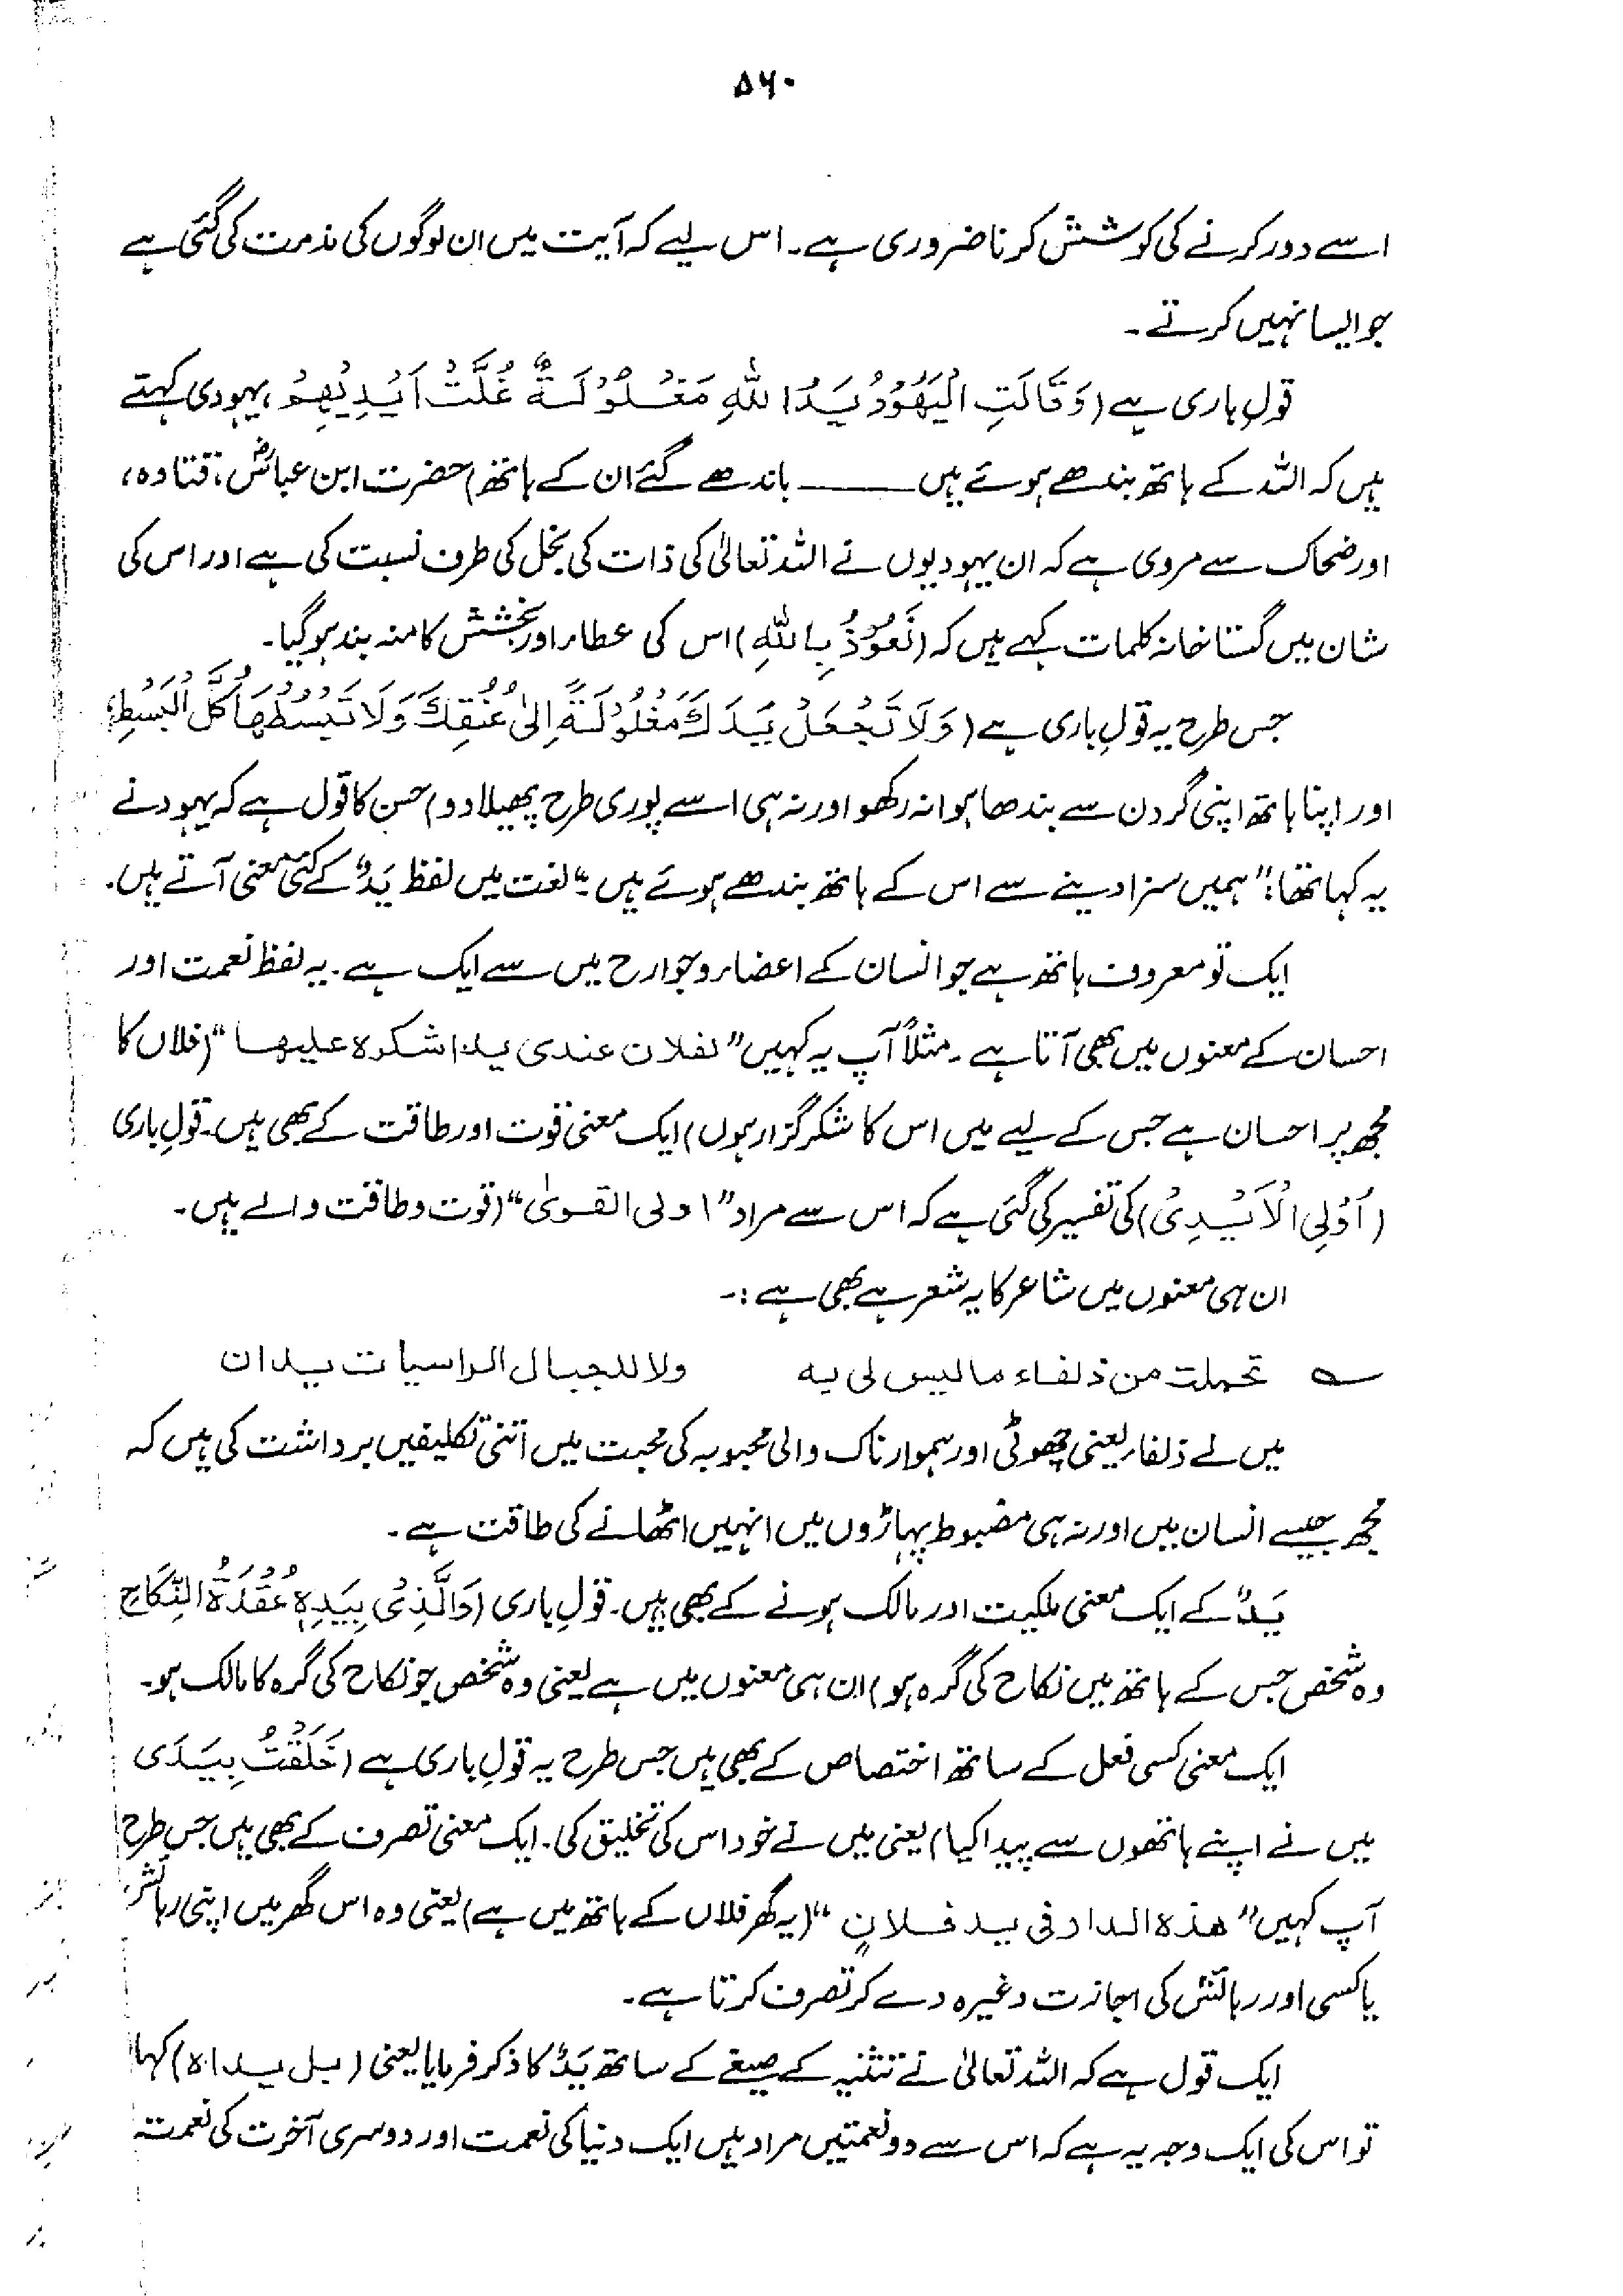 ۵۶۰
اسے دور کرنے کی کوشش کرنا ضروری ہے۔ اس لیے کہ آیت میں ان لوگوں کی مذمت کی گئی ہے
جو ایسا نہیں کرتے۔
قولِ باری ہے (وَقَالَتِ الْیَهُوْدُ یَدُ اللّٰهِ مَغْلُوْلَةٌ غُلَّتْ اَیْدِیْهِمْ، یہودی کہتے
ہیں کہ اللہ کے ہاتھ بندھے ہوئے ہیں ——— باندھے گئے ان کے ہاتھ) حضرت ابن عباسؓ، قتادہ،
اور ضحاک سے مروی ہے کہ ان یہودیوں نے اللہ تعالیٰ کی ذات کی بخل کی طرف نسبت کی ہے اور اس کی
شان میں گستاخانہ کلمات کہے ہیں کہ (نَعُوْذُ بِاللّٰهِ) اس کی عطاء اور بخشش کا منہ بند ہو گیا۔
جس طرح یہ قولِ باری ہے (وَلَا تَجْعَلْ یَدَكَ مَغْلُوْلَةً اِلٰی عُنُقِكَ وَلَا تَبْسُطْهَا كُلَّ الْبَسْطِ،
اور اپنا ہاتھ اپنی گردن سے بندھا ہوا نہ رکھو اور نہ ہی اسے پوری طرح پھیلا دو) حسن کا قول ہے کہ یہود نے
یہ کہا تھا: "ہمیں سزا دینے سے اس کے ہاتھ بندھے ہوئے ہیں"۔ لغت میں لفظ یَدٌ کے کئی معنی آتے ہیں۔
ایک تو معروف ہاتھ ہے جو انسان کے اعضاء و جوارح میں سے ایک ہے۔ یہ لفظ نعمت اور
احسان کے معنوں میں بھی آتا ہے۔ مثلاً آپ یہ کہیں "لفلان عندی ید اشکرہ علیها" (فلاں کا
مجھ پر احسان ہے جس کے لیے میں اس کا شکر گزار ہوں) ایک معنی قوت اور طاقت کے بھی ہیں۔ قولِ باری
(اُولِی الْاَیْدِیْ) کی تفسیر کی گئی ہے کہ اس سے مراد "اولی القویٰ" (قوت و طاقت والے ہیں۔
ان ہی معنوں میں شاعر کا یہ شعر ہے بھی ہے:۔
؎ تحملت من ذلفاء مالیس لی یه ولا للجبال الراسیات یدان
میں نے ذلفاء یعنی چھوٹی اور ہموار ناک والی محبوبہ کی محبت میں اتنی تکلیفیں برداشت کی ہیں کہ
مجھ جیسے انسان میں اور نہ ہی مضبوط پہاڑوں میں انہیں اٹھانے کی طاقت ہے۔
یَدٌ کے ایک معنی ملکیت اور مالک ہونے کے بھی ہیں۔ قولِ باری (وَالَّذِیْ بِیَدِهٖ عُقْدَةُ النِّكَاحِ
وہ شخص جس کے ہاتھ میں نکاح کی گرہ ہو) ان ہی معنوں میں ہے یعنی وہ شخص جو نکاح کی گرہ کا مالک ہو۔
ایک معنی کسی فعل کے ساتھ اختصاص کے بھی ہیں جس طرح یہ قولِ باری ہے (خَلَقْتُ بِیَدَی
میں نے اپنے ہاتھوں سے پیدا کیا) یعنی میں نے خود اس کی تخلیق کی۔ ایک معنی تصرف کے بھی ہیں جس طرح
آپ کہیں "هذه الدار فی ید فلانٍ" (یہ گھر فلاں کے ہاتھ میں ہے) یعنی وہ اس گھر میں اپنی رہائش
یا کسی اور رہائش کی اجازت وغیرہ دے کر تصرف کرتا ہے۔
ایک قول ہے کہ اللہ تعالیٰ نے تثنیہ کے صیغے کے ساتھ یَدٌ کا ذکر فرمایا یعنی (بل یداہ) کہا
تو اس کی ایک وجہ یہ ہے کہ اس سے دو نعمتیں مراد ہیں ایک دنیا کی نعمت اور دوسری آخرت کی نعمت